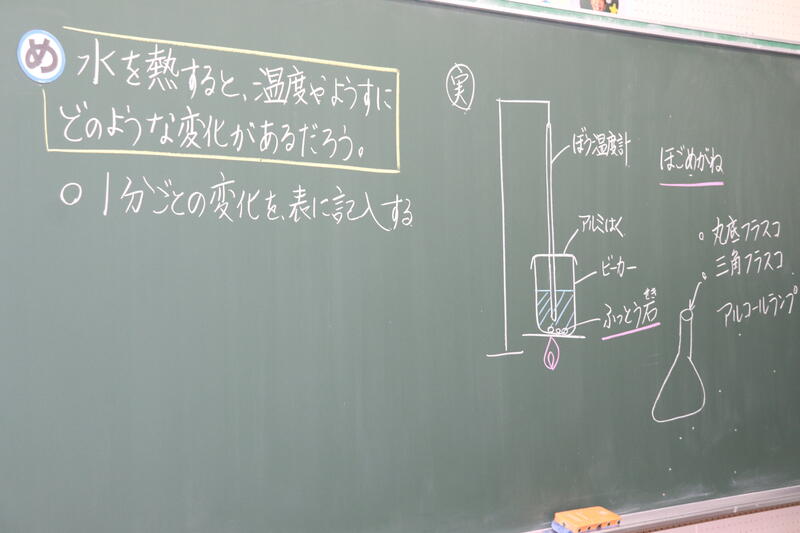 め
水を熱すると、温度やようすに
どのような変化があるだろう。
○1分ごとの変化を、表に記入する
実
ぼう温度計
アルミはく
ビーカー
せき
ふっとう石
ほごめがね
丸底フラスコ
三角フラスコ
アルコールランプ